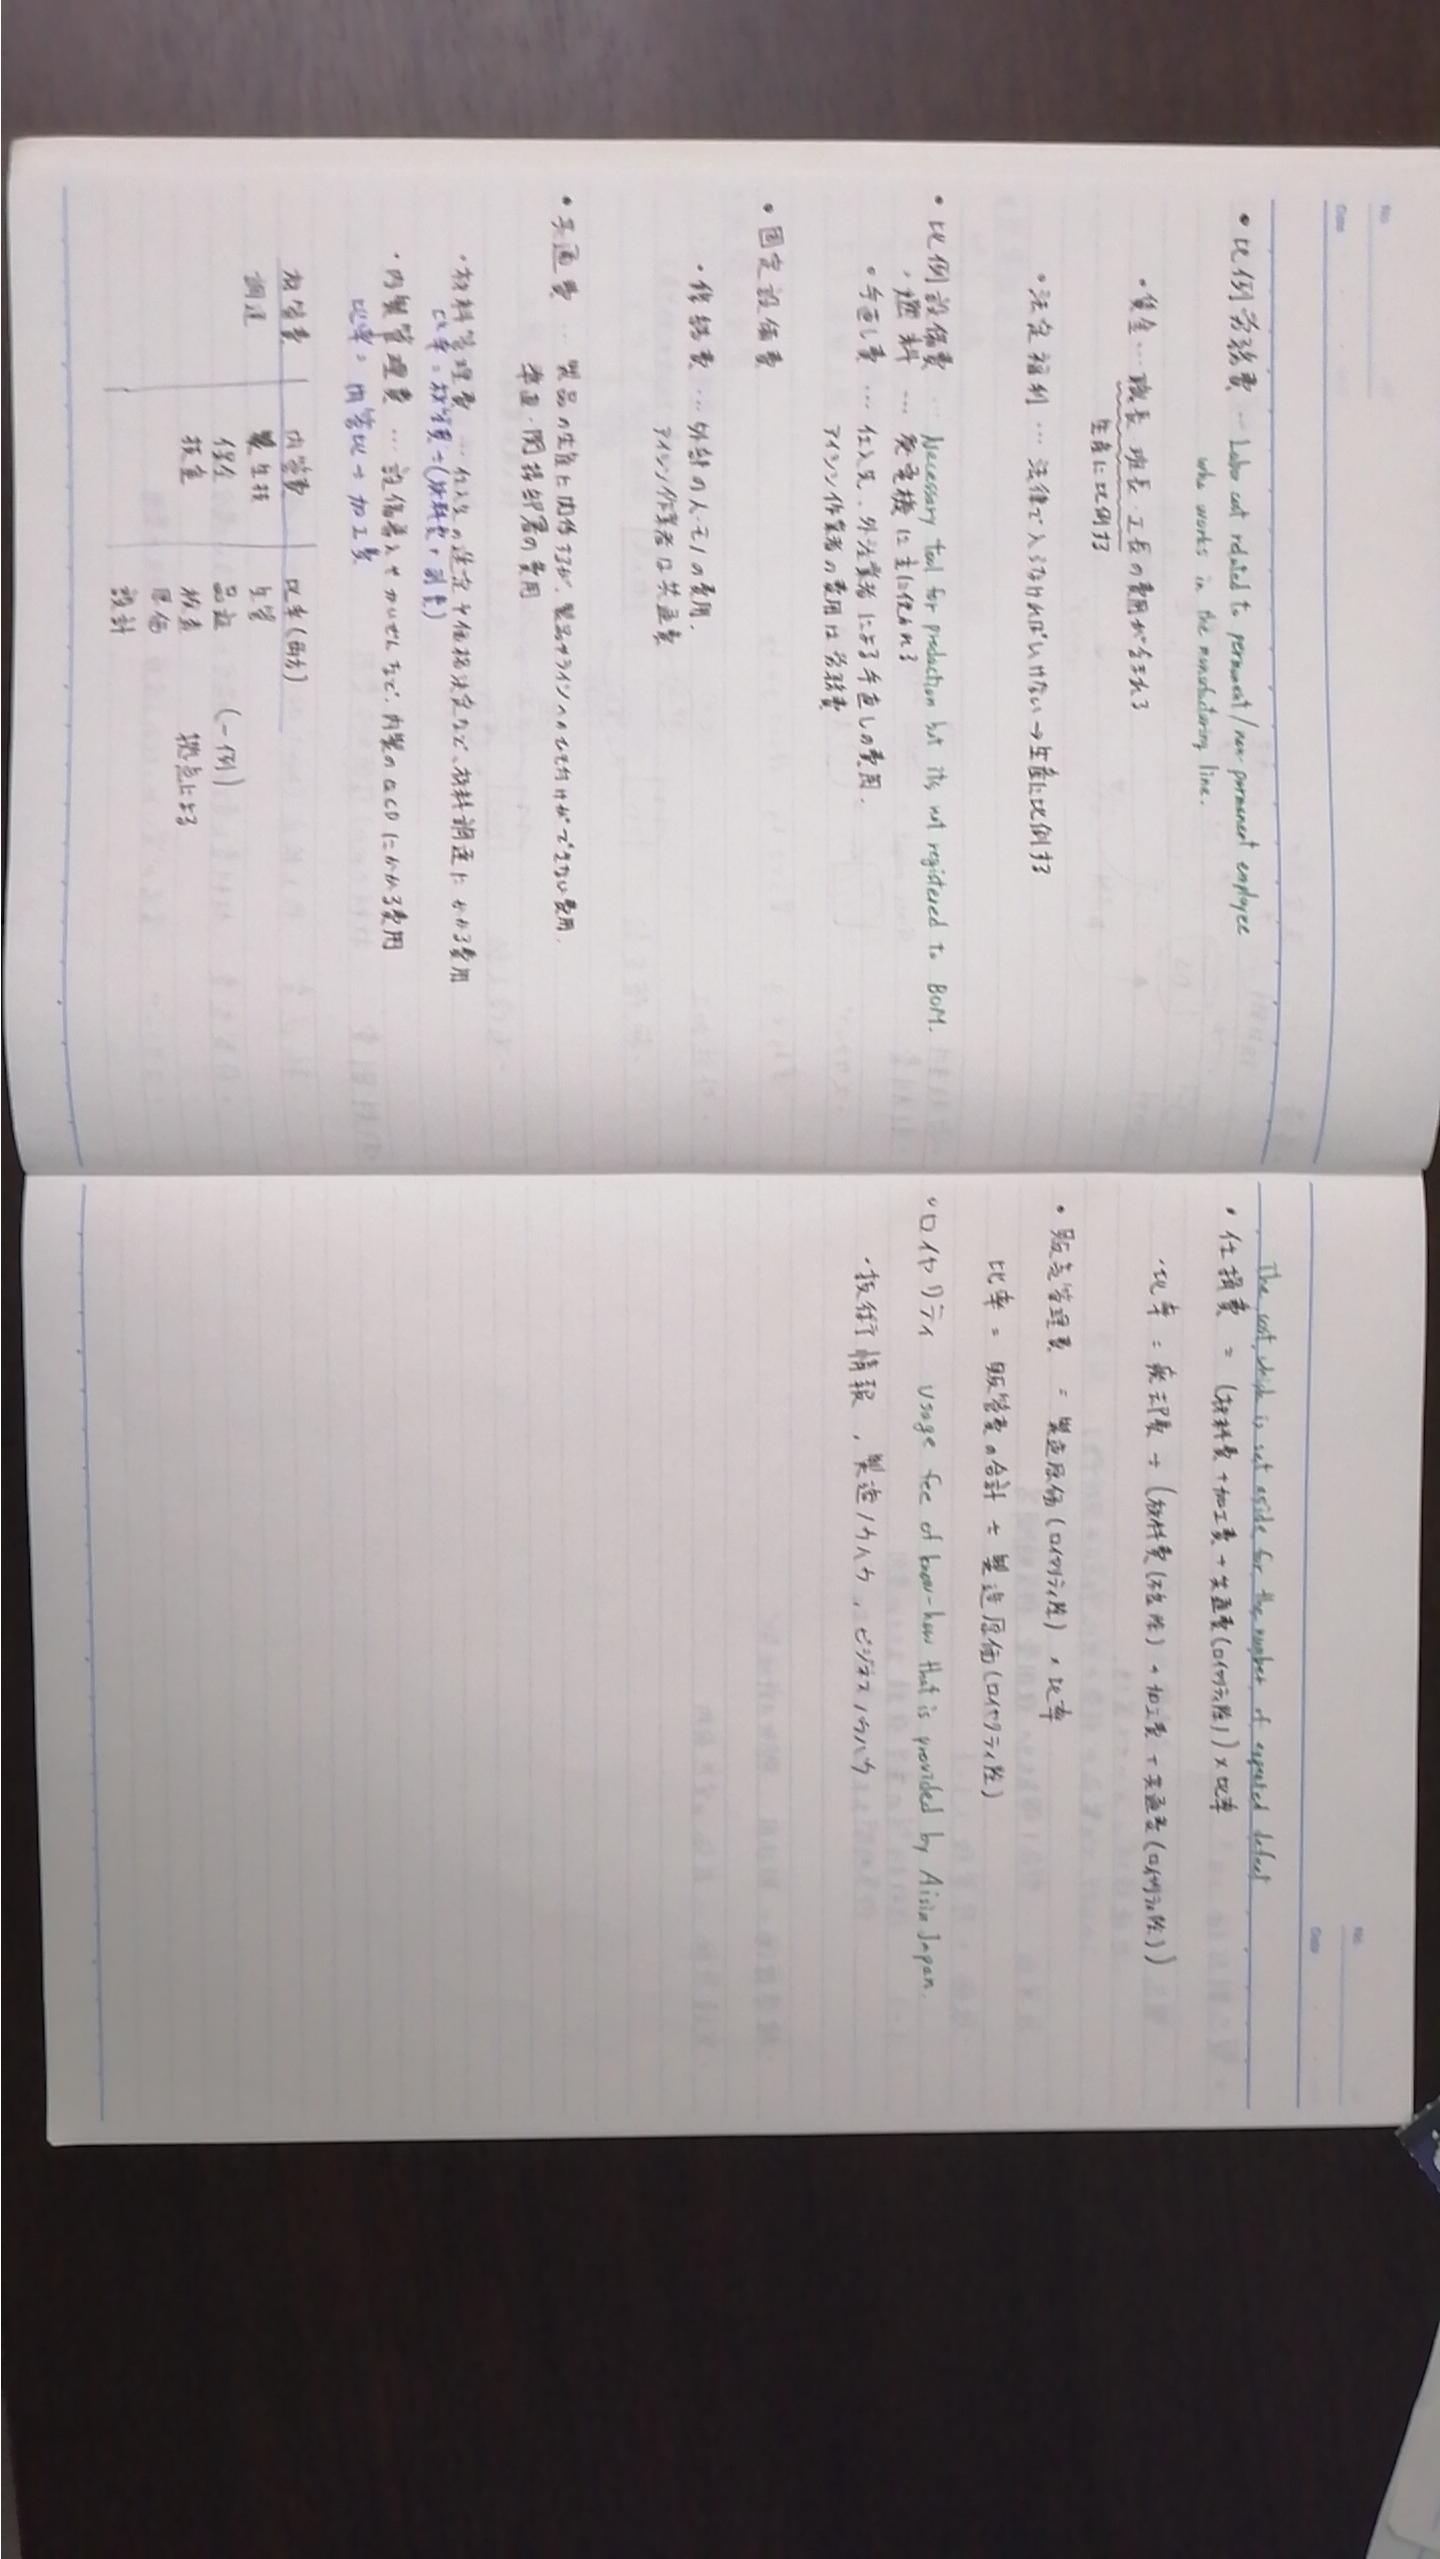 No.
Date
・比例労務費 … Labor cost related to permanent/non-permanent employee
who works in the manufacturing line.
・賃金 … 職長 班長・工長の費用が含まれる
生産に比例する
・法定福利 … 法律で入らなければいけない→生産に比例する
・比例設備費 … Necessary tool for production but it's not registered to BOM.
・燃料 … 発電機に主に使われる
・手直し費 … 仕入先、外注業者による手直しの費用.
アイシン作業者の費用は労務費
・固定設備費
・修繕費 … 外部の人・モノの費用.
アイシン作業者は共通費
・共通費 … 製品の生産に関係するが、製品やラインへのひも付けができない費用.
準直・間接部署の費用
・材料管理費 … 仕入先の選定や価格決定など、材料調達にかかる費用
比率 = 材管費÷(材料費+副費)
・内製管理費 … 設備導入やかいぜんなど、内製のQCDにかかる費用
比率 = 内管比→加工費
材管費 内管費 比率(両方)
調達 製生技 生管
保全 品証 (一例)
技査 検査 拠点による
原価
設計
No.
Date
The cost which is set aside for the number of expected defect
・仕損費 = (材料費+加工費+共通費(ロイヤリティ除))×比率
・比率 = 廃却費÷(材料費(    除)+加工費+共通費(ロイヤリティ除))
・販売管理費 = 製造原価(ロイヤリティ除)×比率
比率 = 販管費の合計÷製造原価(ロイヤリティ除)
・ロイヤリティ Usage fee of know-how that is provided by Aisin Japan.
・技術情報、製造ノウハウ、ビジネスノウハウ